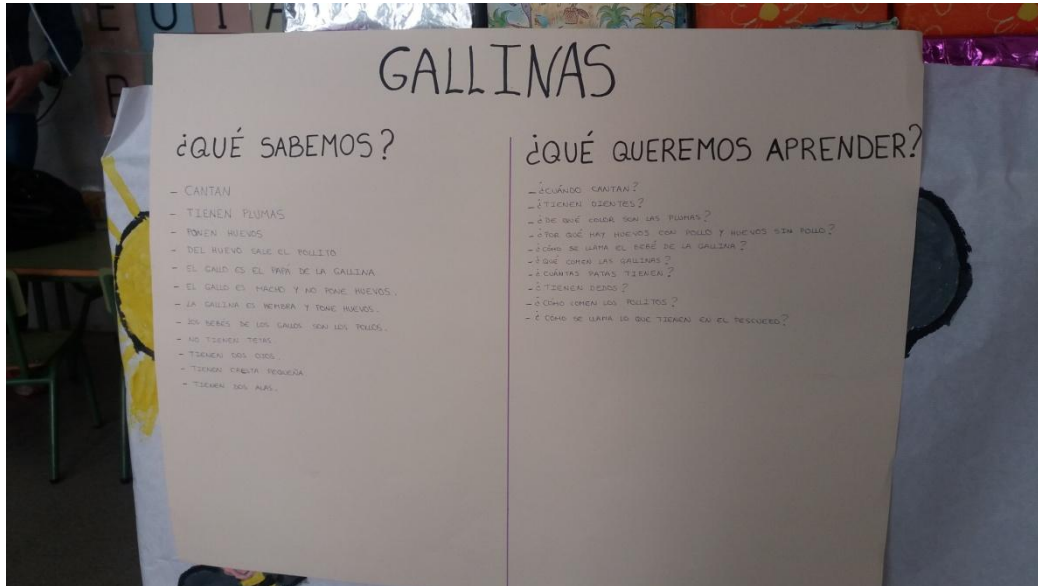 E U I A
B
GALLINAS
¿QUÉ SABEMOS?
- CANTAN
- TIENEN PLUMAS
- PONEN HUEVOS
- DEL HUEVO SALE EL POLLITO
- EL GALLO ES EL PAPÁ DE LA GALLINA
- EL GALLO ES MACHO Y NO PONE HUEVOS.
- LA GALLINA ES HEMBRA Y PONE HUEVOS.
- LOS BEBÉS DE LOS GALLOS SON LOS POLLOS.
- NO TIENEN TETAS.
- TIENEN DOS OJOS.
- TIENEN CABEZA PEQUEÑA
- TIENEN DOS ALAS.
¿QUÉ QUEREMOS APRENDER?
- ¿CUÁNDO CANTAN?
- ¿TIENEN DIENTES?
- ¿DE QUÉ COLOR SON LAS PLUMAS?
- ¿POR QUÉ HAY HUEVOS CON POLLO Y HUEVOS SIN POLLO?
- ¿CÓMO SE LLAMA EL BEBÉ DE LA GALLINA?
- ¿QUÉ COMEN LAS GALLINAS?
- ¿CUÁNTAS PATAS TIENEN?
- ¿TIENEN DEDOS?
- ¿CÓMO COMEN LOS POLLITOS?
- ¿CÓMO SE LLAMA LO QUE TIENEN EN EL PESCUEZO?